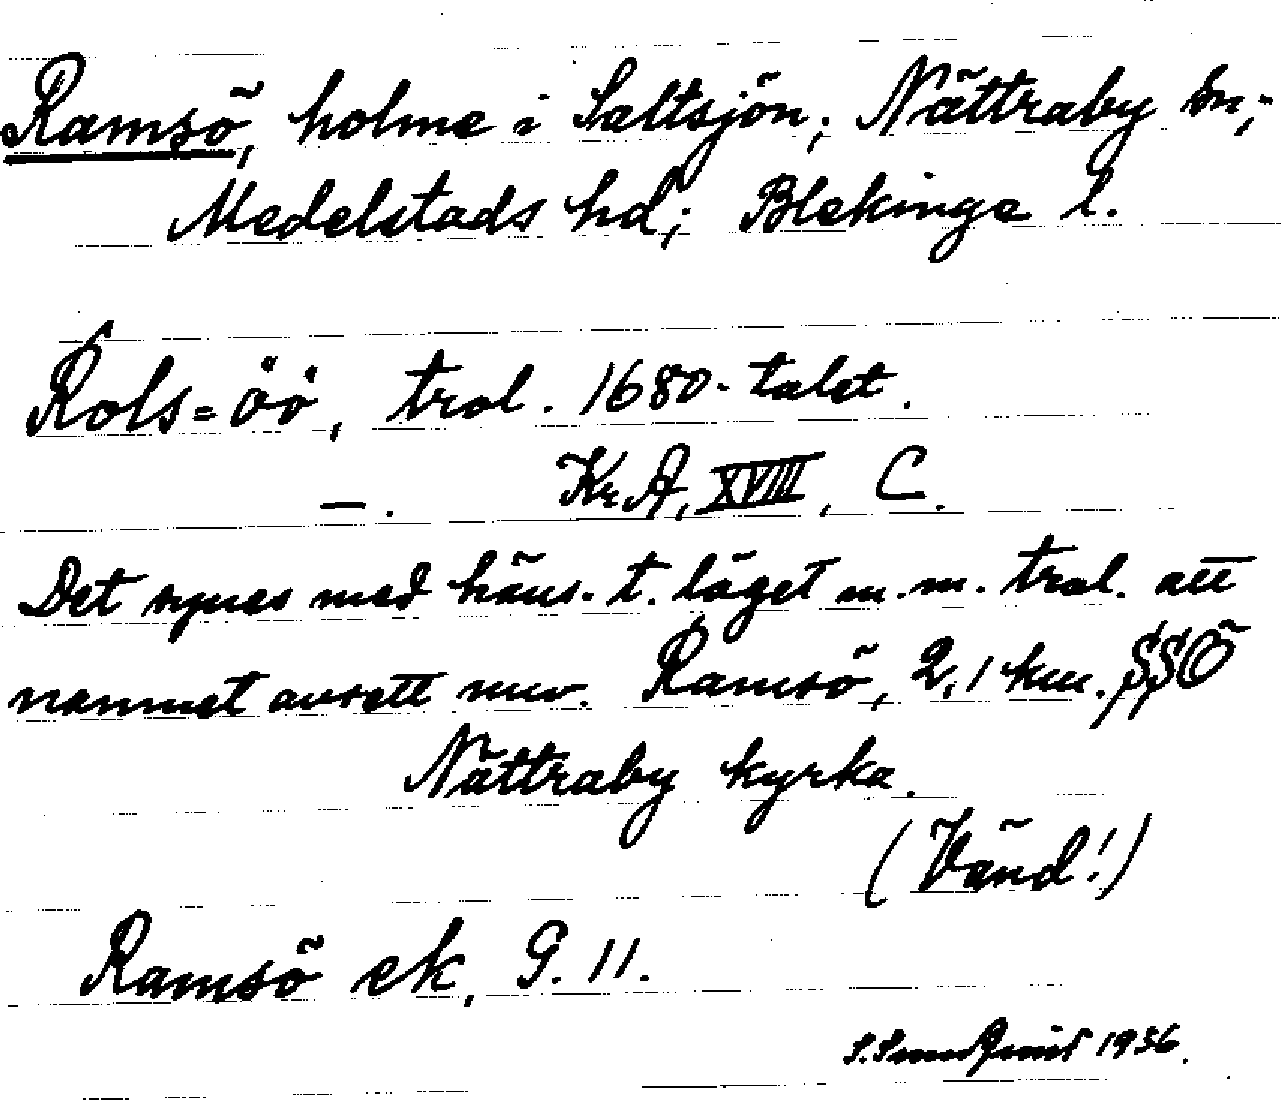 Ramsö, holme i Saltsjön; Nättraby sn;
Medelstads hd; Blekinge l.
Rols=öö, trol. 1680-talet.
—. KrA, XVIII, C.
Det synes med häns. t. läget m.m. trol. att
namnet avsett nuv. Ramsö, 2,1 km. SSÖ
Nättraby kyrka.
(Vänd!)
Ramsö ek, 9. 11.
S. Sundquist 1936.